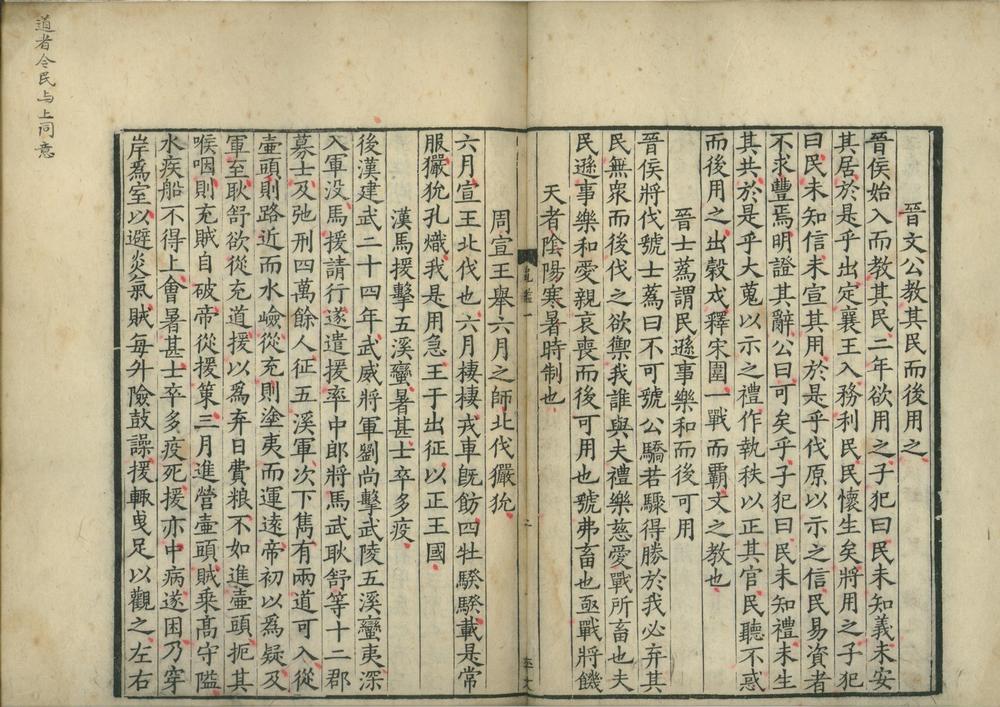 晉文公教其民而後用之
晉侯始入而教其民二年欲用之子犯曰民未知義未安
其居於是乎出定襄王入務利民民懷生矣將用之子犯
曰民未知信未宣其用於是乎伐原以示之信民易資者
不求豐焉明證其辭公曰可矣乎子犯曰民未知禮未生
其共於是乎大蒐以示之禮作執秩以正其官民聽不惑
而後用之出穀戍釋宋圍一戰而霸文之教也
晉士蒍謂民遜事樂和而後可用
晉侯將代號士蒍曰不可號公驕若驟得勝於我必弃其
民無衆而後伐之欲禦我誰與夫禮樂慈愛戰所畜也夫
民遜事樂和愛親哀喪而後可用也號弗畜也亟戰將饑
天者陰陽寒暑時制也
周宣王舉六月之師北伐玁狁
六月宣王北伐也六月棲棲戎車旣飭四牡騤騤載是常
服玁狁孔熾我是用急王于出征以正王國
漢馬援擊五溪蠻暑甚士卒多疫
後漢建武二十四年武威將軍劉尚擊武陵五溪蠻夷深
入軍没馬援請行遂遣援率中郎將馬武耿舒等十二郡
募士及弛刑四萬餘人征五溪軍次下雋有兩道可入從
壺頭則路近而水嶮從充則塗夷而運遠帝初以爲疑及
軍至耿舒欲從充道援以爲弃日費粮不如進壷頭扼其
喉咽則充賊自破帝從援策三月進營壷頭賊乗髙守隘
水疾船不得上會暑甚士卒多疫死援亦中病遂困乃穿
岸爲室以避炎氣賊每外險鼓譟援輙曵足以觀之左右
道者令民与上同意